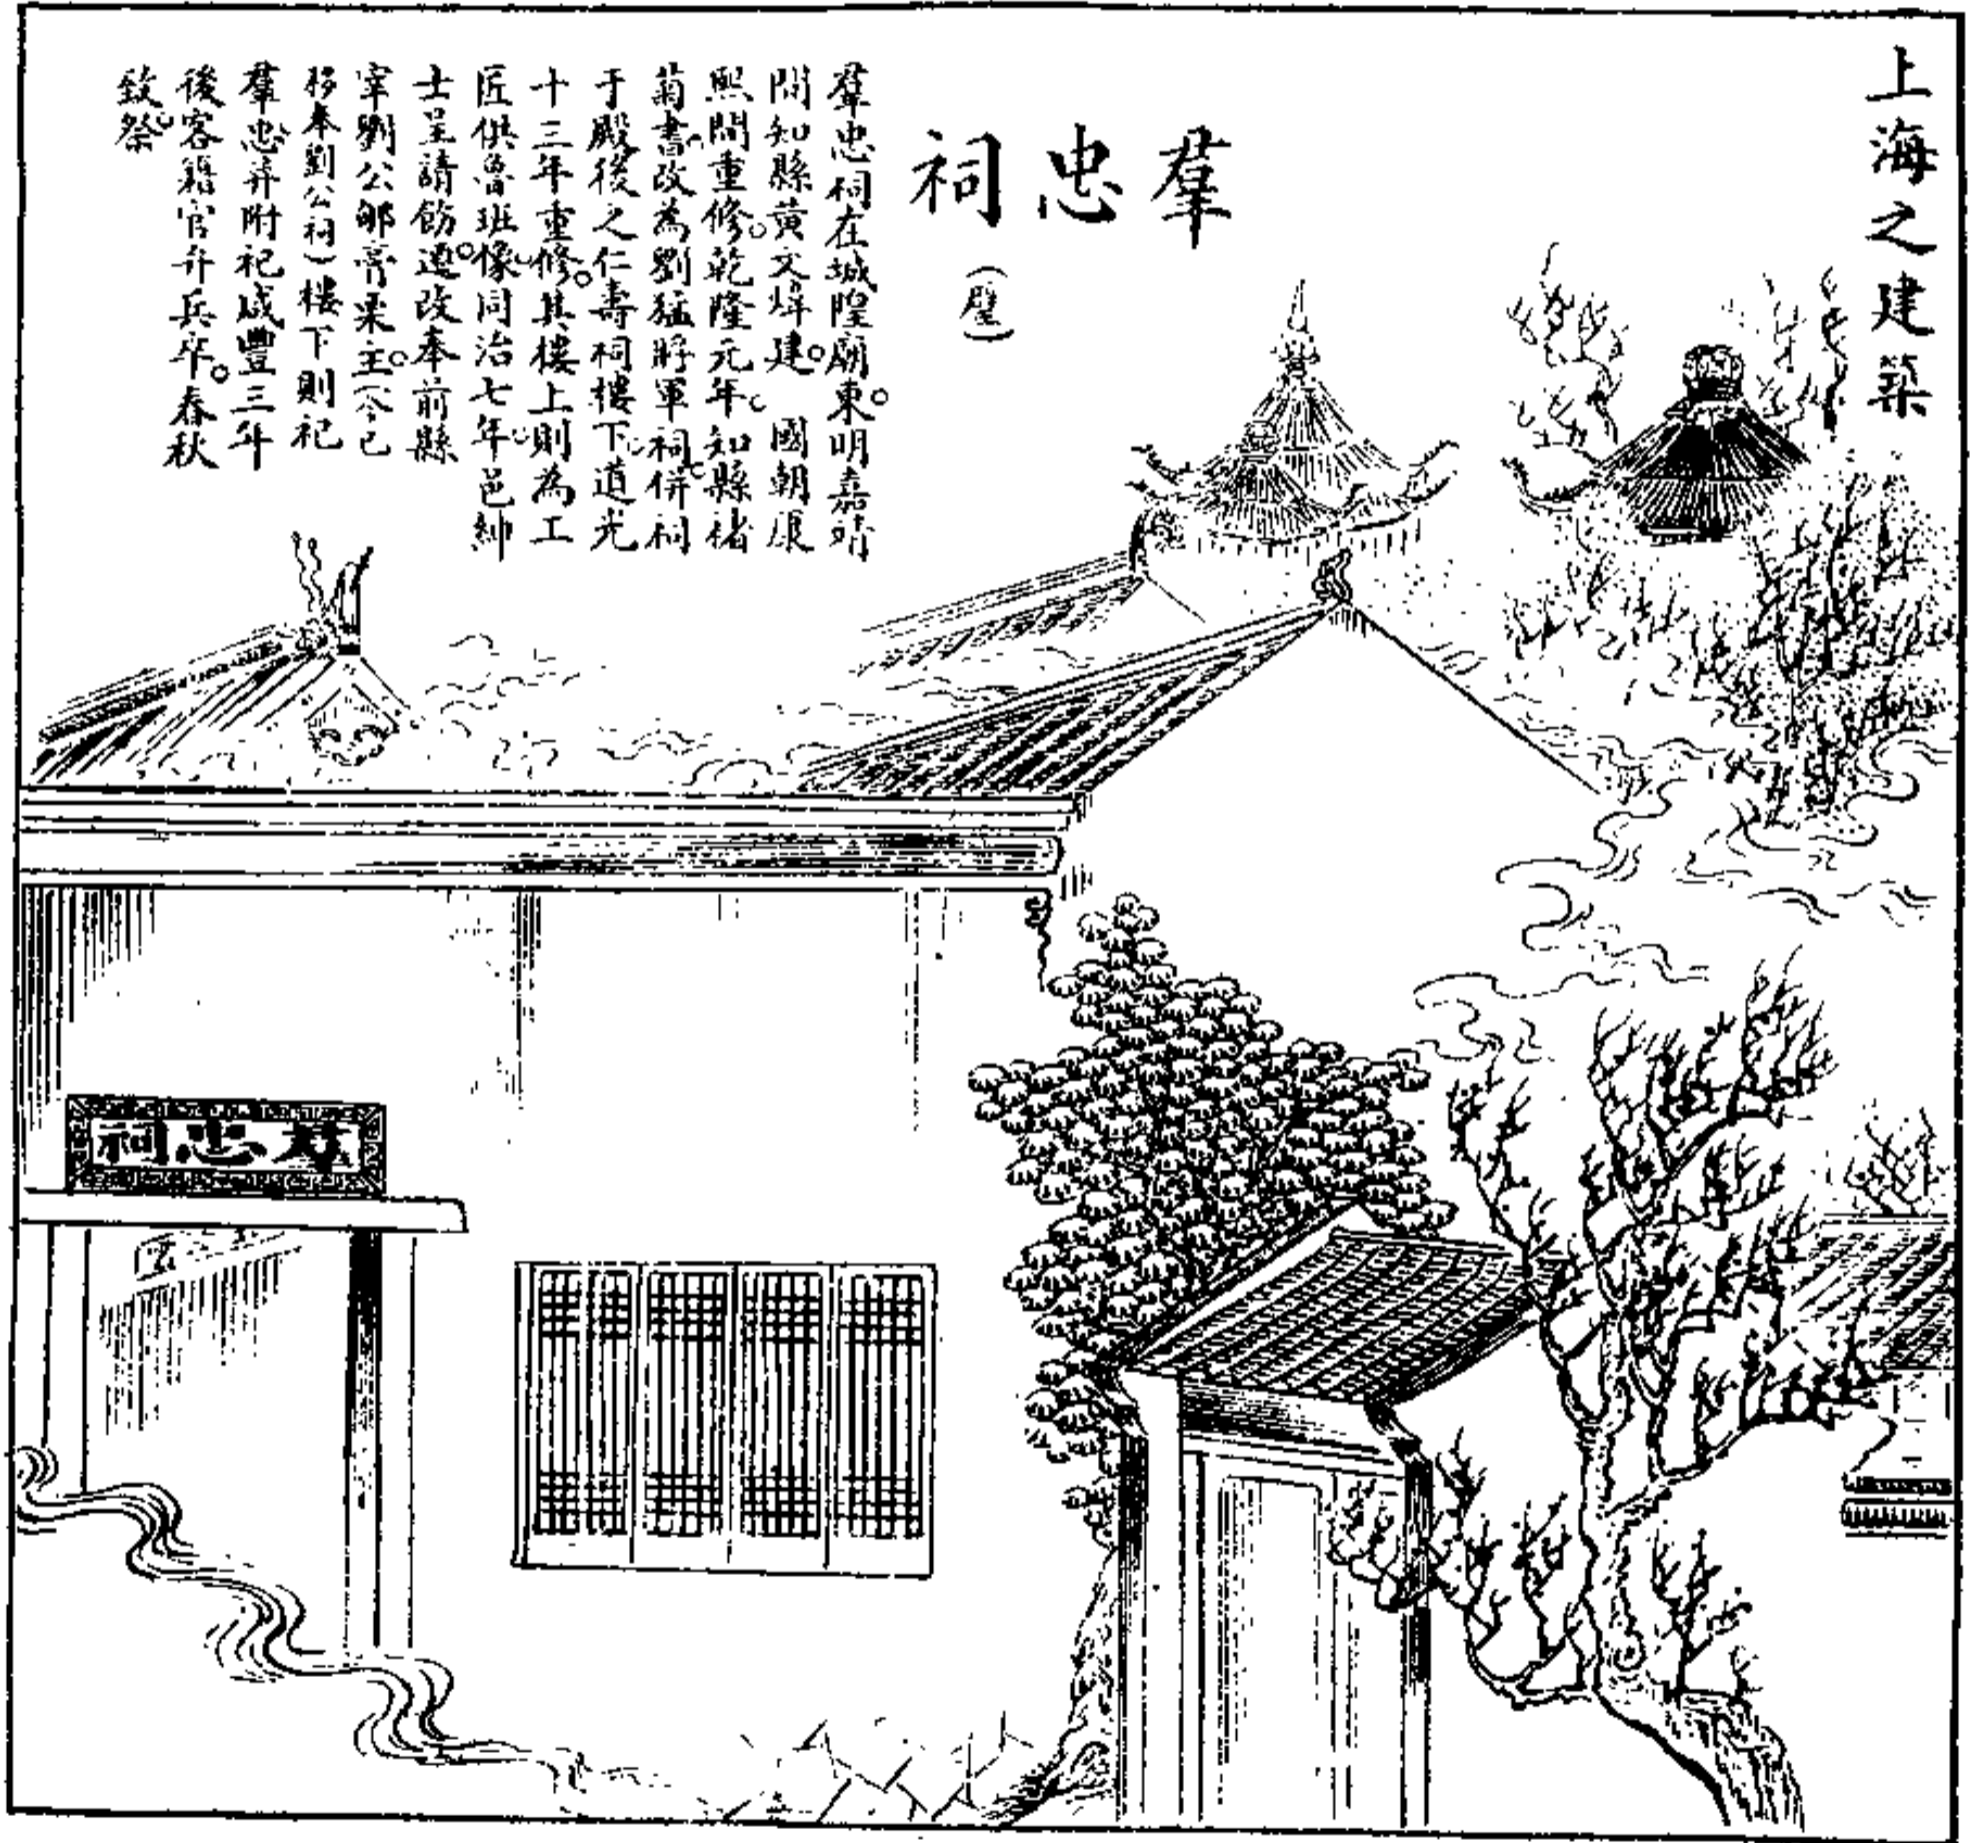 上海之建築
羣忠祠
（璧）
羣忠祠在城隍廟東。明嘉靖
間知縣黃文煒建。國朝康
熙間重修。乾隆元年。知縣褚
菊書改為劉猛將軍祠。併祠
于殿後之仁壽祠樓下。道光
十三年重修。其樓上則為工
匠供魯班像。同治七年。邑紳
士呈請飭遷。改奉前縣
宰劉公郇膏栗主。（今已
移奉劉公祠）樓下則祀
羣忠。并附祀咸豐三年
後客籍官弁兵卒。春秋
致祭。
羣忠祠